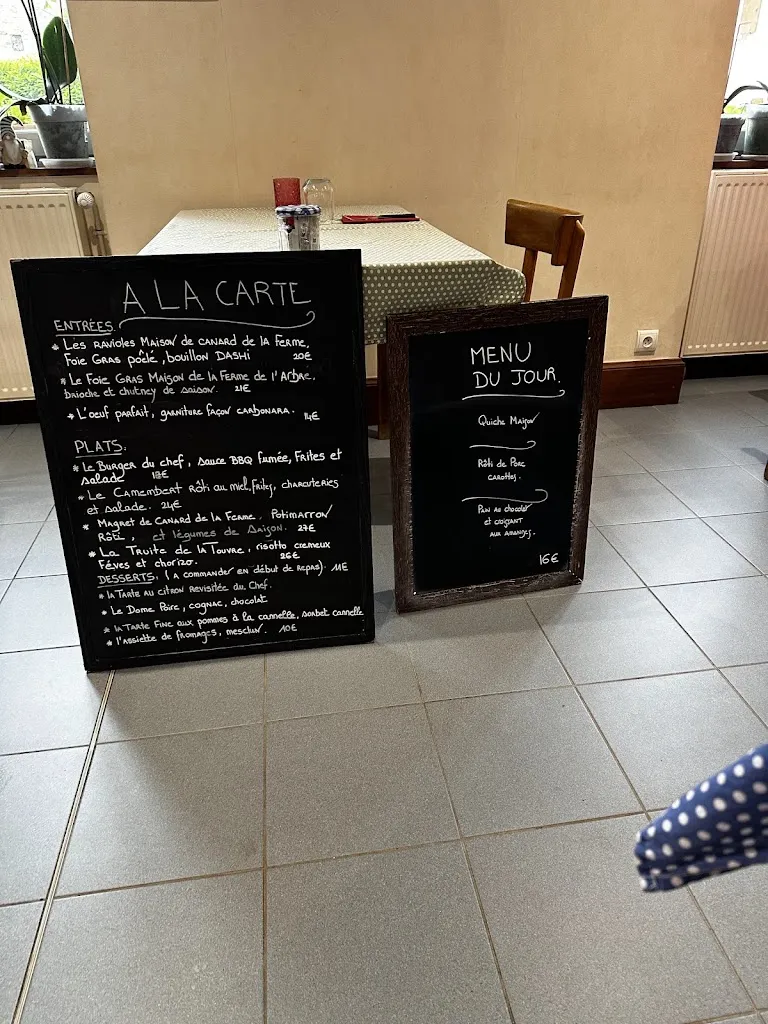 A LA CARTE
ENTRÉES.
* Les ravioles Maison de canard de la ferme,
Foie Gras poêlé, bouillon DASHI 20€
* Le Foie Gras Maison de la Ferme de l'Arbre,
brioche et chutney de saison. 21€
* L'oeuf parfait, garniture façon carbonara. 14€
PLATS:
* Le Burger du chef, sauce BBQ fumée, Frites et
salade 18€
* Le Camembert Rôti au miel, frites, charcuteries
et salade. 24€
* Magret de Canard de la Ferme, Potimarron
Rôti, et légumes de Saison. 27€
* La Truite de la Touvre, risotto crémeux
Fèves et chorizo. 26€
DESSERTS, (a commander en début de repas). 11€
* la Tarte au citron Revisitée du Chef.
* Le Dome Poire, cognac, chocolat
* la Tarte Fine aux pommes à la cannelle, sorbet cannelle
* l'assiette de fromages, mesclun. 10€
MENU
DU JOUR.
Quiche Maison
Rôti de Porc
carottes.
Pain au chocolat
et croissant
aux amandes.
16€